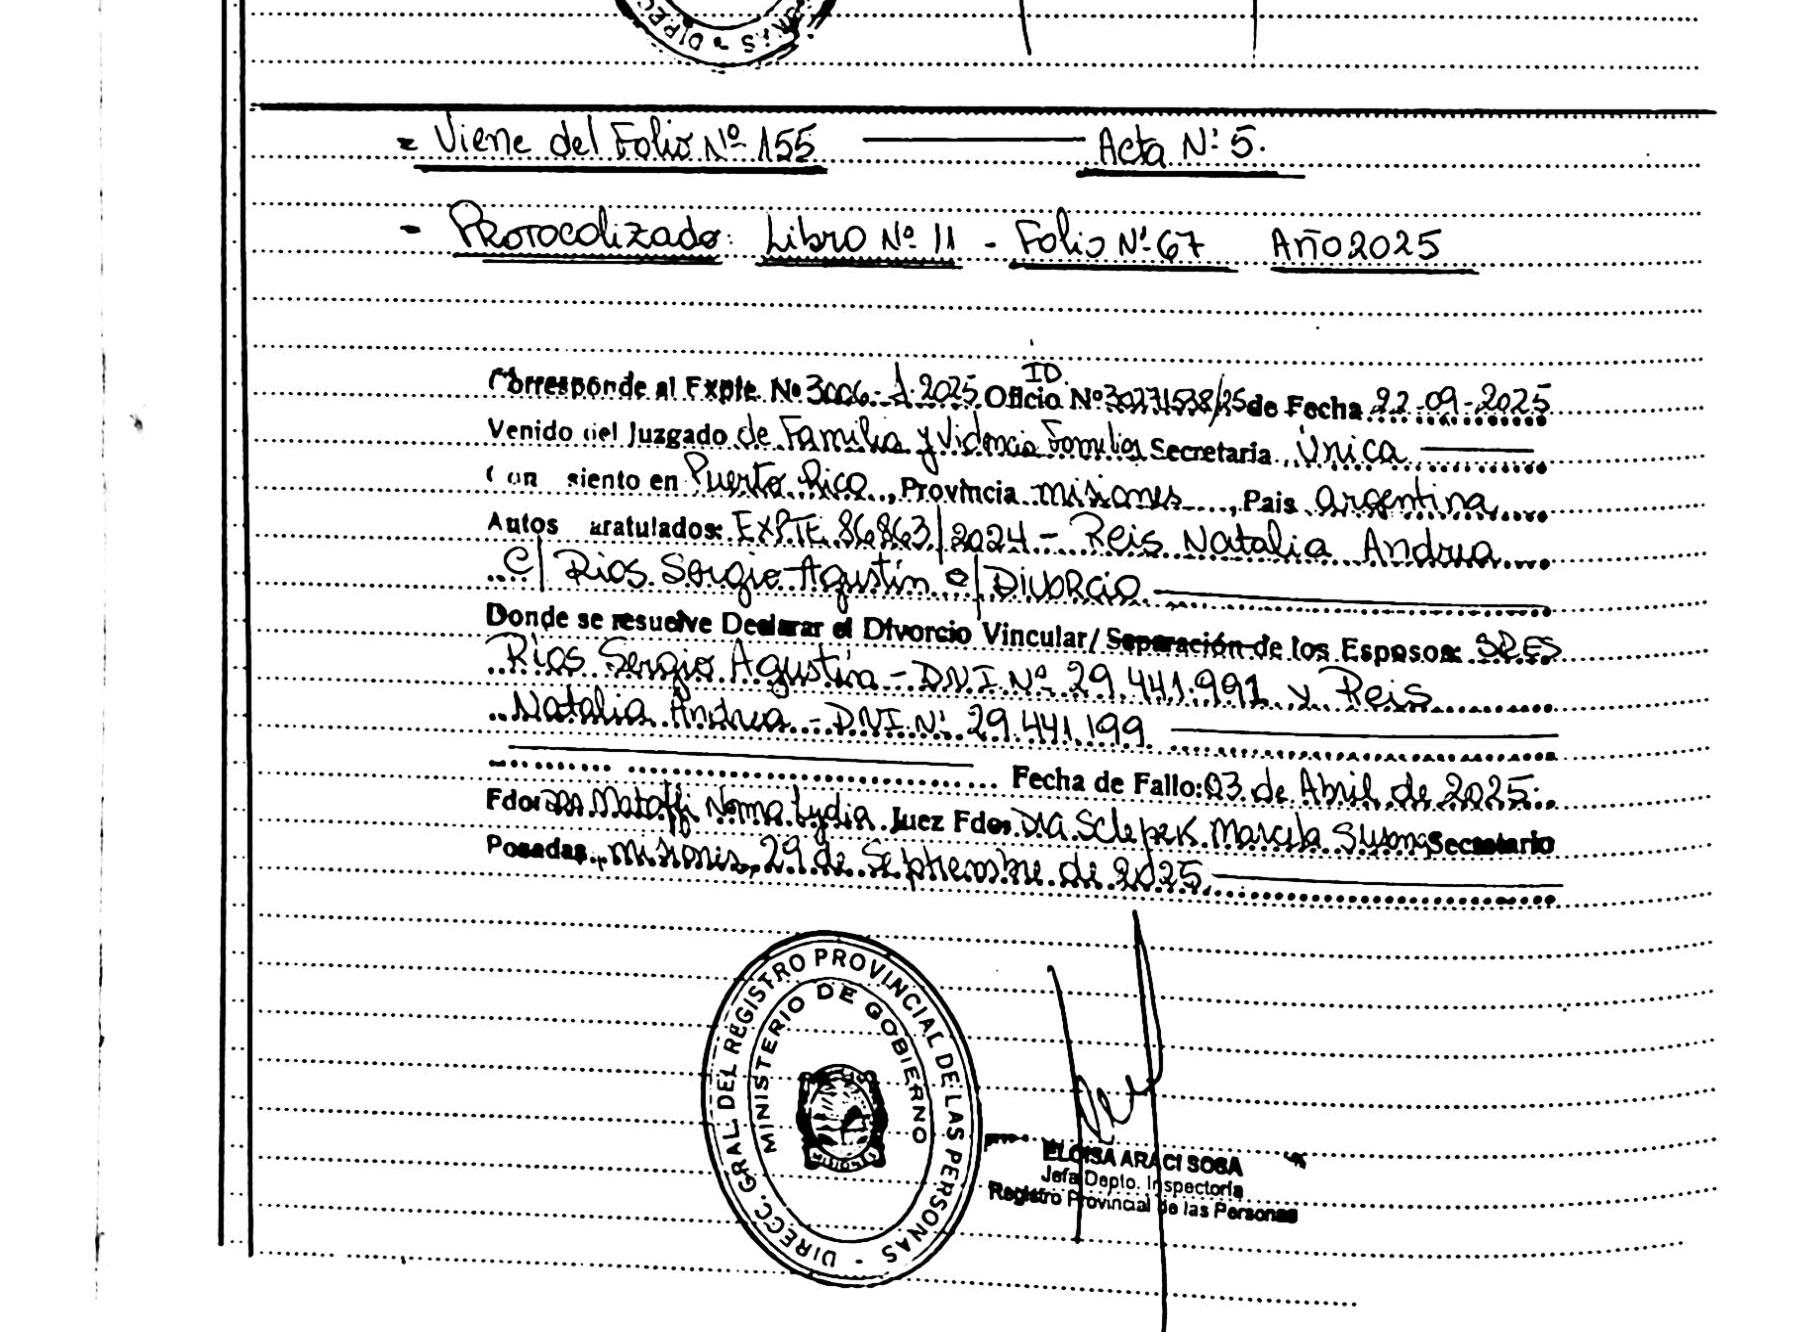 DIRECC. S
= Viene del Folio Nº 155 ——— Acta Nº 5.
- Protocolizado: Libro Nº 11 - Folio Nº 67 Año 2025
ID
Corresponde al Expte. Nº 3006-J-2025 Oficio Nº 30271538/25 de Fecha 22-09-2025
Venido del Juzgado de Familia y Violencia Familiar Secretaría Única
Con siento en Puerto Rico, Provincia misiones, Pais argentina
Autos aratulados: EXPTE 86863/2024 - Reis Natalia Andrea
C/ Rios Sergio Agustín s/ Divorcio
Donde se resuelve Declarar el Divorcio Vincular/ Separación de los Esposos: SRES
Rios Sergio Agustín - DNI Nº 29.441.991 y Reis
Natalia Andrea - DNI Nº 29.441.199
Fecha de Fallo: 03 de Abril de 2025.
Fdo: Dra Matoffi Norma Lydia Juez Fdo, Dra. Sclepek Marcela Susana Secretario
Posadas, misiones, 29 de Septiembre de 2025
DIRECC. GRAL. DEL REGISTRO PROVINCIAL DE LAS PERSONAS -
MINISTERIO DE GOBIERNO
ELOISA ARACI SOSA
Jefa Depto. Inspectoría
Registro Provincial de las Personas